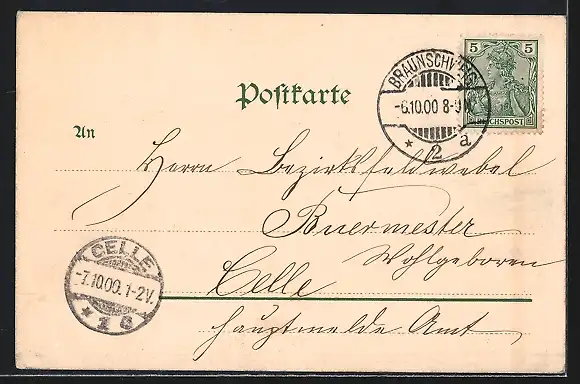 5 5
REICHSPOST
BRAUNSCHWEIG
-6.10.00 8-9 N.
* 2 a
Postkarte
An
Herrn Bezirksfeldwebel
Buermester
Wohlgeboren
Celle
Hauptmelde Amt
CELLE
-7.10.00. 1-2V.
* 1 c